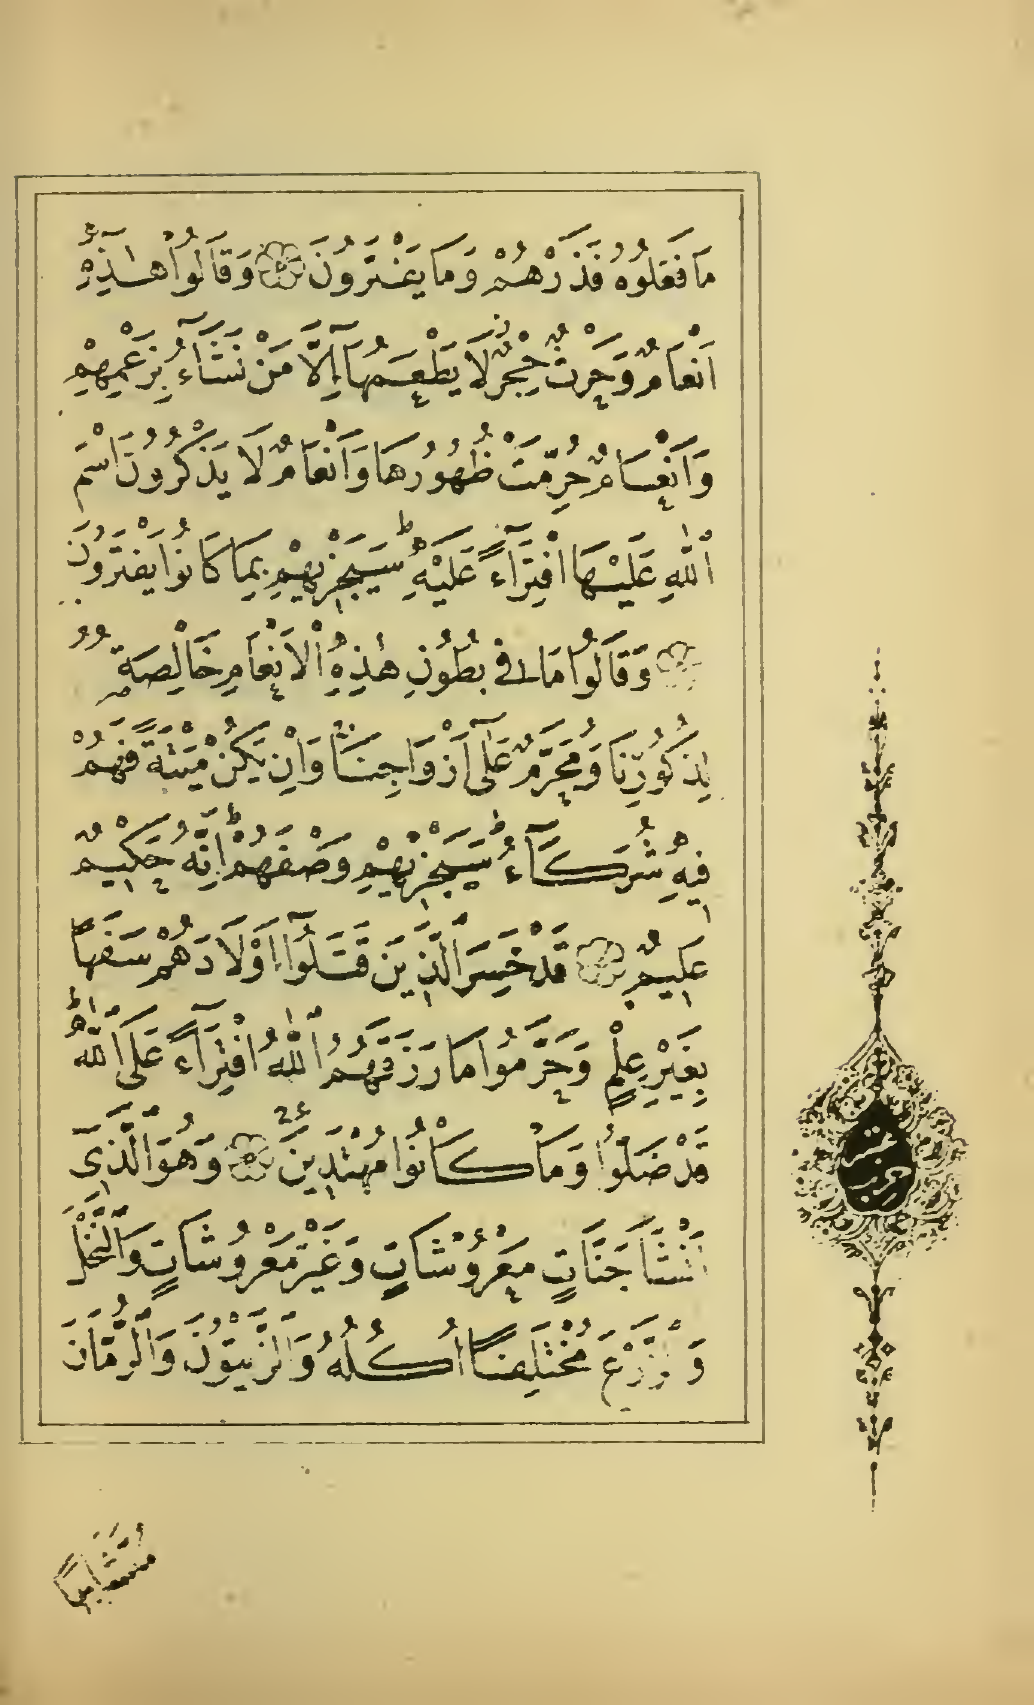 مَا فَعَلُوهُ فَذَرْهُمْ وَمَا يَفْتَرُونَ وَقَالُوا هٰذِهٖٓ
اَنْعَامٌ وَحَرْثٌ حِجْرٌ لَا يَطْعَمُهَٓا اِلَّا مَنْ نَشَٓاءُ بِزَعْمِهِمْ
وَاَنْعَامٌ حُرِّمَتْ ظُهُورُهَا وَاَنْعَامٌ لَا يَذْكُرُونَ اسْمَ
اللّٰهِ عَلَيْهَا افْتِرَٓاءً عَلَيْهِ ط سَيَجْزِيهِمْ بِمَا كَانُوا يَفْتَرُونَ
وَقَالُوا مَا فِي بُطُونِ هٰذِهِ الْاَنْعَامِ خَالِصَةٌ
لِذُكُورِنَا وَمُحَرَّمٌ عَلٰٓى اَزْوَاجِنَا وَاِنْ يَكُنْ مَيْتَةً فَهُمْ
فِيهِ شُرَكَٓاءُ ط سَيَجْزِيهِمْ وَصْفَهُمْ ط اِنَّهُ حَكِيمٌ
عَلِيمٌ قَدْ خَسِرَ الَّذِينَ قَتَلُٓوا اَوْلَادَهُمْ سَفَهًا
بِغَيْرِ عِلْمٍ وَحَرَّمُوا مَا رَزَقَهُمُ اللّٰهُ افْتِرَٓاءً عَلَى اللّٰهِ ط
قَدْ ضَلُّوا وَمَا كَانُوا مُهْتَدِينَ وَهُوَ الَّذِٓي
اَنْشَاَ جَنَّاتٍ مَعْرُوشَاتٍ وَغَيْرَ مَعْرُوشَاتٍ وَالنَّخْلَ
وَالزَّرْعَ مُخْتَلِفًا اُكُلُهُ وَالزَّيْتُونَ وَالرُّمَّانَ
مُتَشَابِهًا